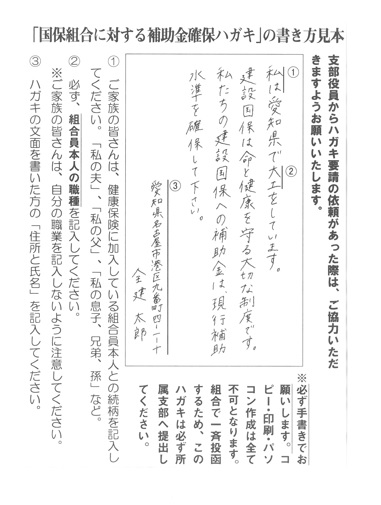 「国保組合に対する補助金確保ハガキ」の書き方見本
支部役員からハガキ要請の依頼があった際は、ご協力いただ
きますようお願いいたします。
①
②
私は愛知県で大工をしています。
建設国保は命と健康を守る大切な制度です。
私たちの建設国保への補助金は、現行補助
水準を確保して下さい。
③
愛知県名古屋市港区九番町四-二-十
全建 太郎
※必ず手書きでお
願いします。コ
ピー・印刷・パソ
コン作成は全て
不可となります。
組合で一斉投函
するため、この
ハガキは必ず所
属支部へ提出し
てください。
① ご家族の皆さんは、健康保険に加入している組合員本人との続柄を記入し
てください。「私の夫」、「私の父」、「私の息子、兄弟、孫」など。
② 必ず、組合員本人の職種を記入してください。
※ご家族の皆さんは、自分の職業を記入しないように注意してください。
③ ハガキの文面を書いた方の「住所と氏名」を記入してください。